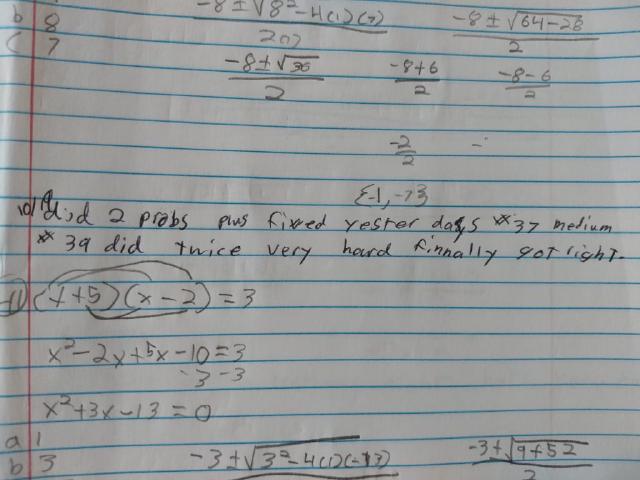 b 8 -8±√8²-4(1)(7) -8±√64-28
c 7 2(1) 2
-8±√36 -8+6 -8-6
2 2 2
-2
2
{-1, -7}
did 2 probs plus fixed yester days *37 medium
* 39 did twice very hard finnally got right.
11 (x+5)(x-2)=3
x²-2x+5x-10=3
-3 -3
x²+3x-13=0
a 1
b 3 -3±√3²-4(1)(-13) -3±√9+52
2